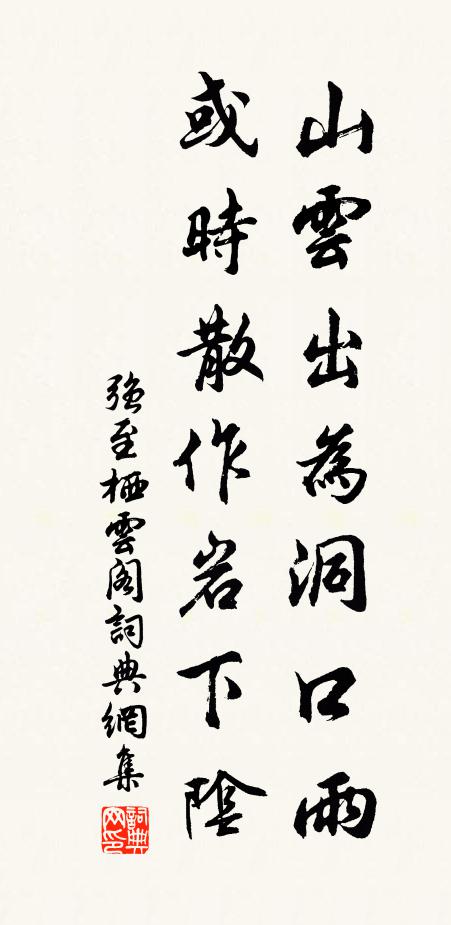 山雲出為洞口雨
或時散作岩下陰
強至栖雲閣詞典網集
詞典
网印